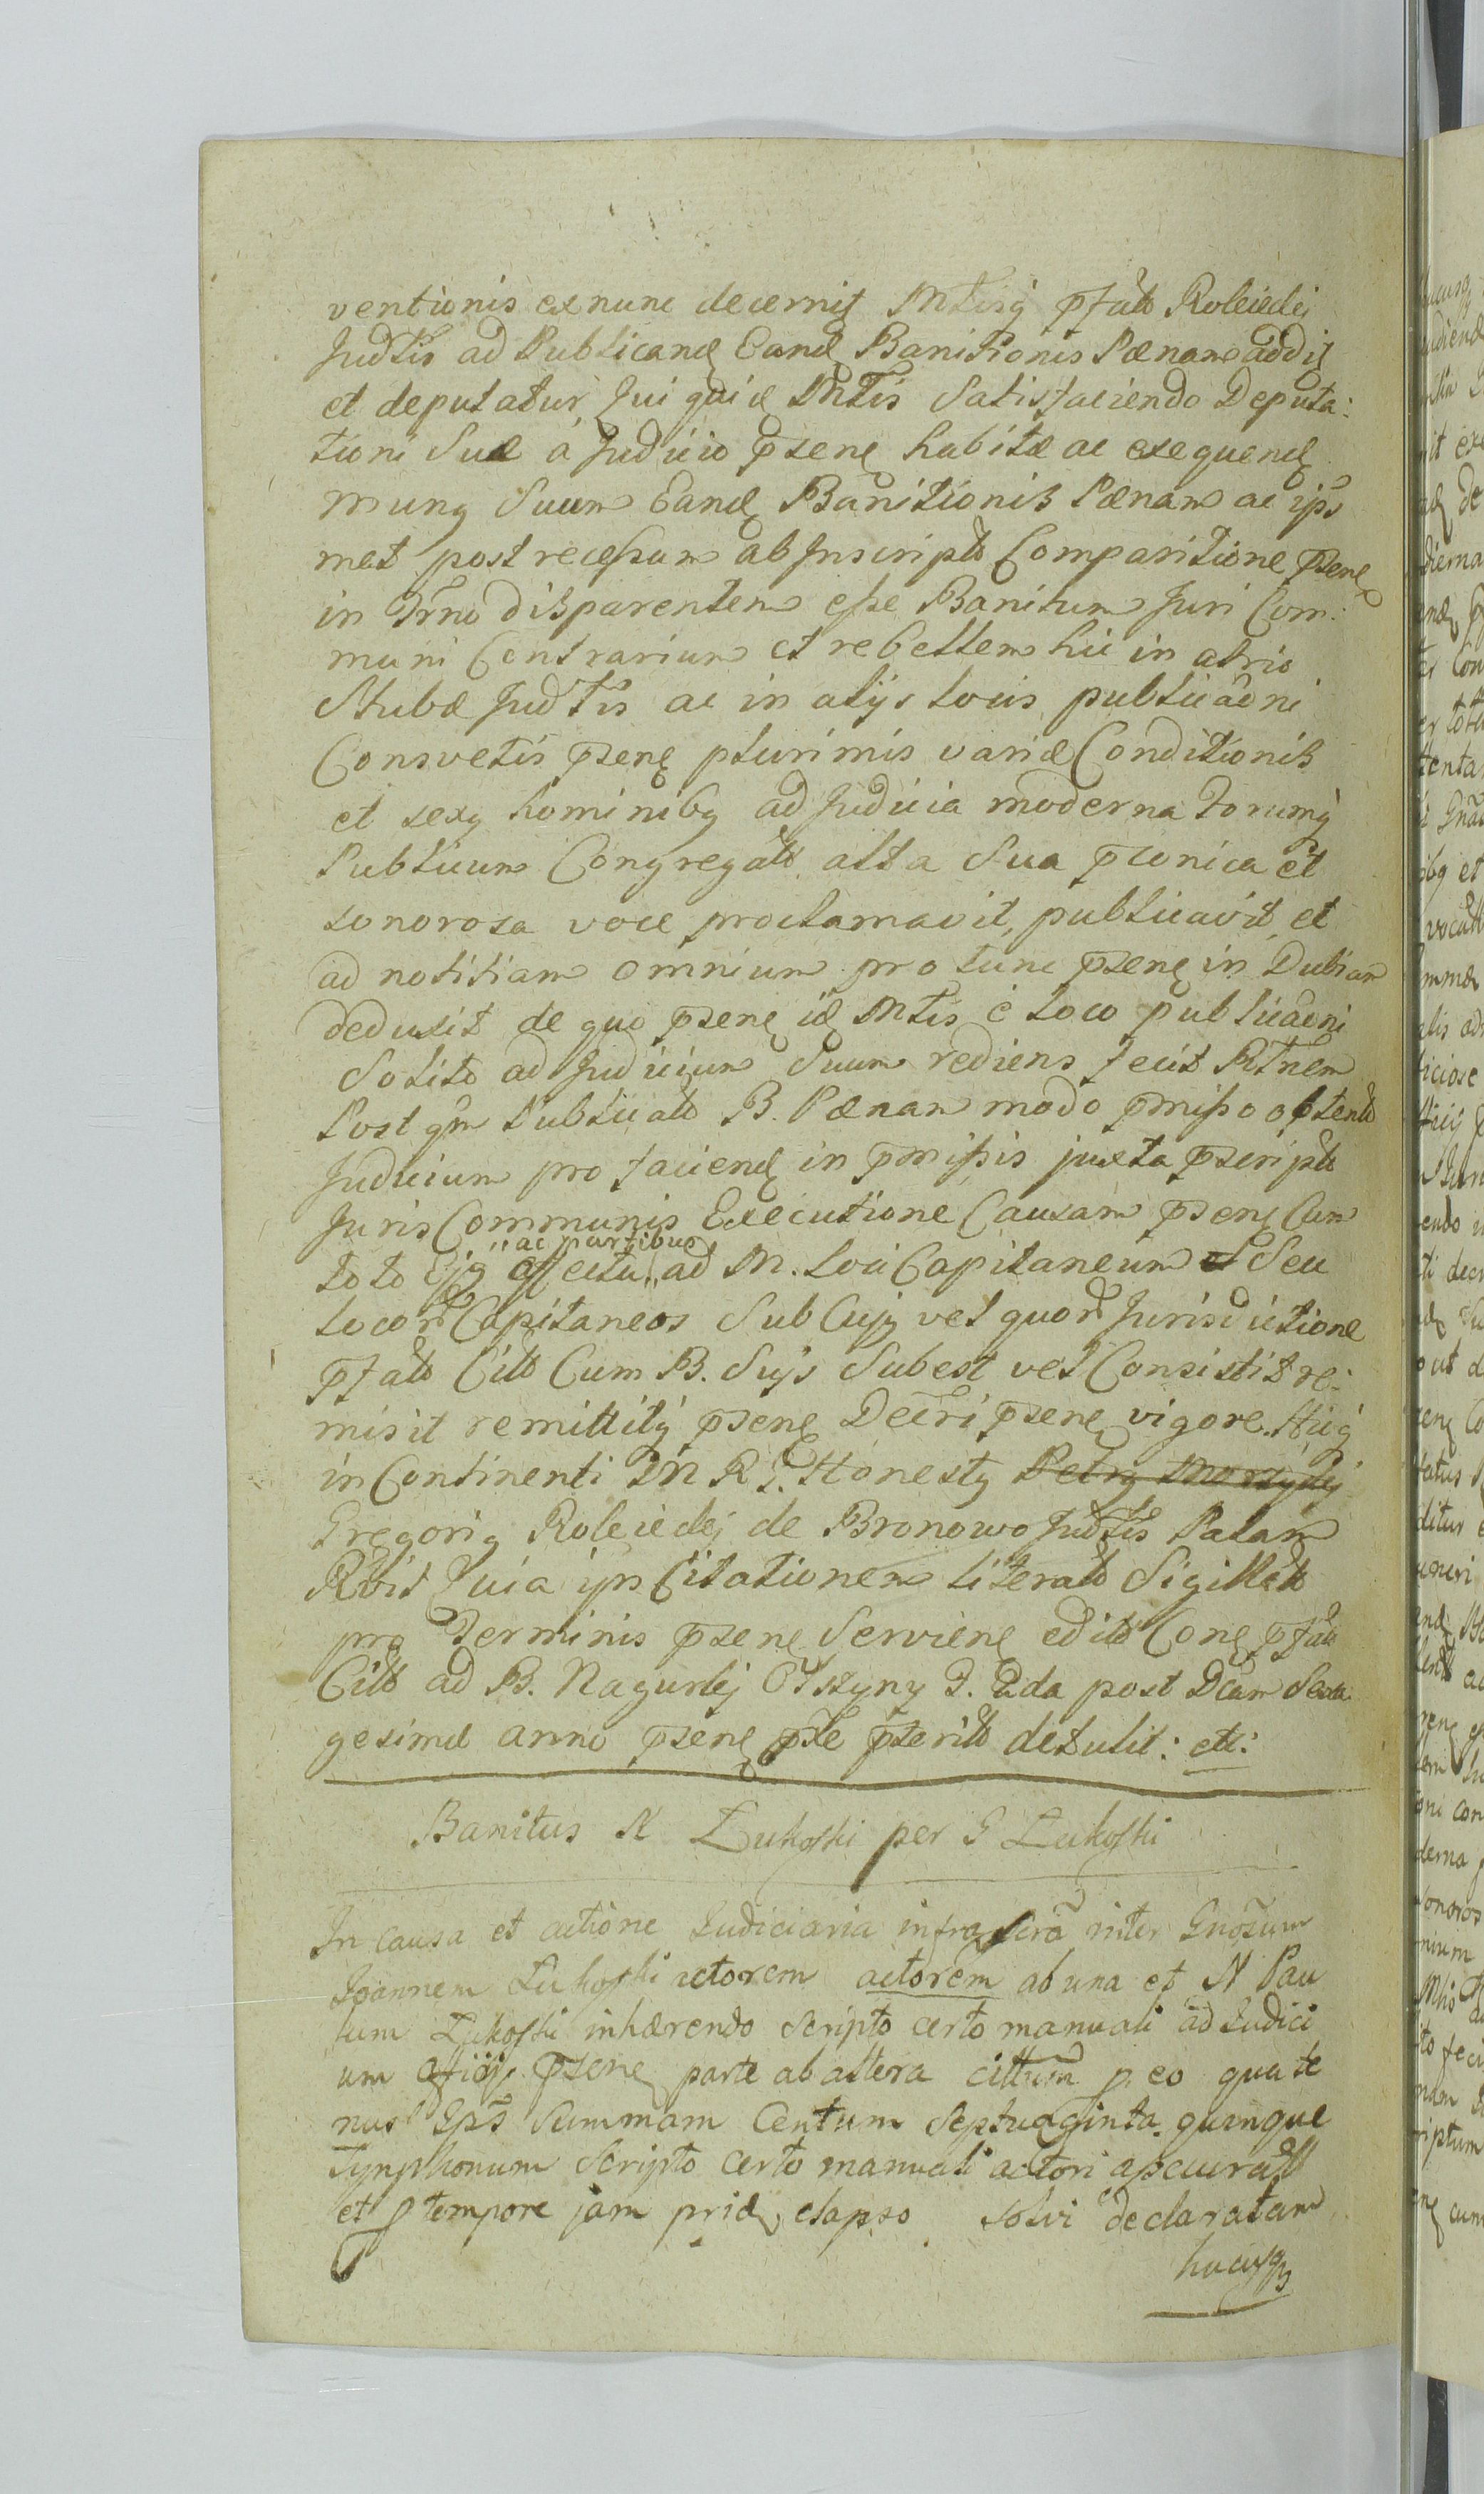 ventionis ex nunc decernit Mtlisq pfato Roleiedej
Judtis ad Publicand Eand Banitionis Pænam addit
et deputatur Qui quid Mtlis Satisfaciendo Deputa:
tioni Suæ á Judicio psene habitæ ac exequend
munq Suum Eand Banitionis Pænam ac ips
met post recessum ab Inscripto Comparitione psene
in Trno disparentem esse Banitum Juri Com:
muni Contrarium et rebellem hic in atrio
Stubæ Judtis ac in alijs locis publicaoni
Consvetis psene plurimis variæ Conditionis
et sexq hominibq ad Judicia moderna Forumq
Publicum Congregato alta Sua pconica et
sonorosa voce proclamavit, publicavit et
ad notitiam omnium pro tunc psene in Dubiam
deduxit de quo psene id Mtlis é loco publicaoni
Solito ad Judicium Suum rediens fecit Rtnem
Post qm Publicato B. Pænam modo pmisso obtento
Judicium pro faciend in pmissis juxta pscripto
Juris Communis Executione Causam psene Cum
ac partibus
toto Ejq effectu ad M. Loci Capitaneum et Seu
locor Capitaneos Sub Cujq vel quor Jurisdictione
pfato Cito Cum B. Suis Subest vel Consistit re:
misit remittitq psene Decri psene vigore. Hicq
in Continenti M R G. Honestq Petrq
Gregoriq Roleiedej de Bronowo Judtis Palam
Rvit Quia ips Citationem literato Sigillato
pro Terminis psene Serviene edito Cone pfato
Cito ad B. Nagurkj Olszyny F. 2da post Dcam Sexa
gesimæ anno psene pte pscrito detulit: etc:
Banitus N Łukoski per G Łukoski
In causa et actione Judiciaria infra scra inter Gnosum
Joannem Łukoski actorem actorem ab una et N Pau
lum Łukoski inhærendo scripto certo manuali ad Judici
um offici psene parte ab altera cittum p eo quate
nus Eps Summam Centum Septuaginta quinque
Tynphonum Scripto certo manuali actori ascurato
et p tempore jam prid elapso solvi declaratam
hucusq